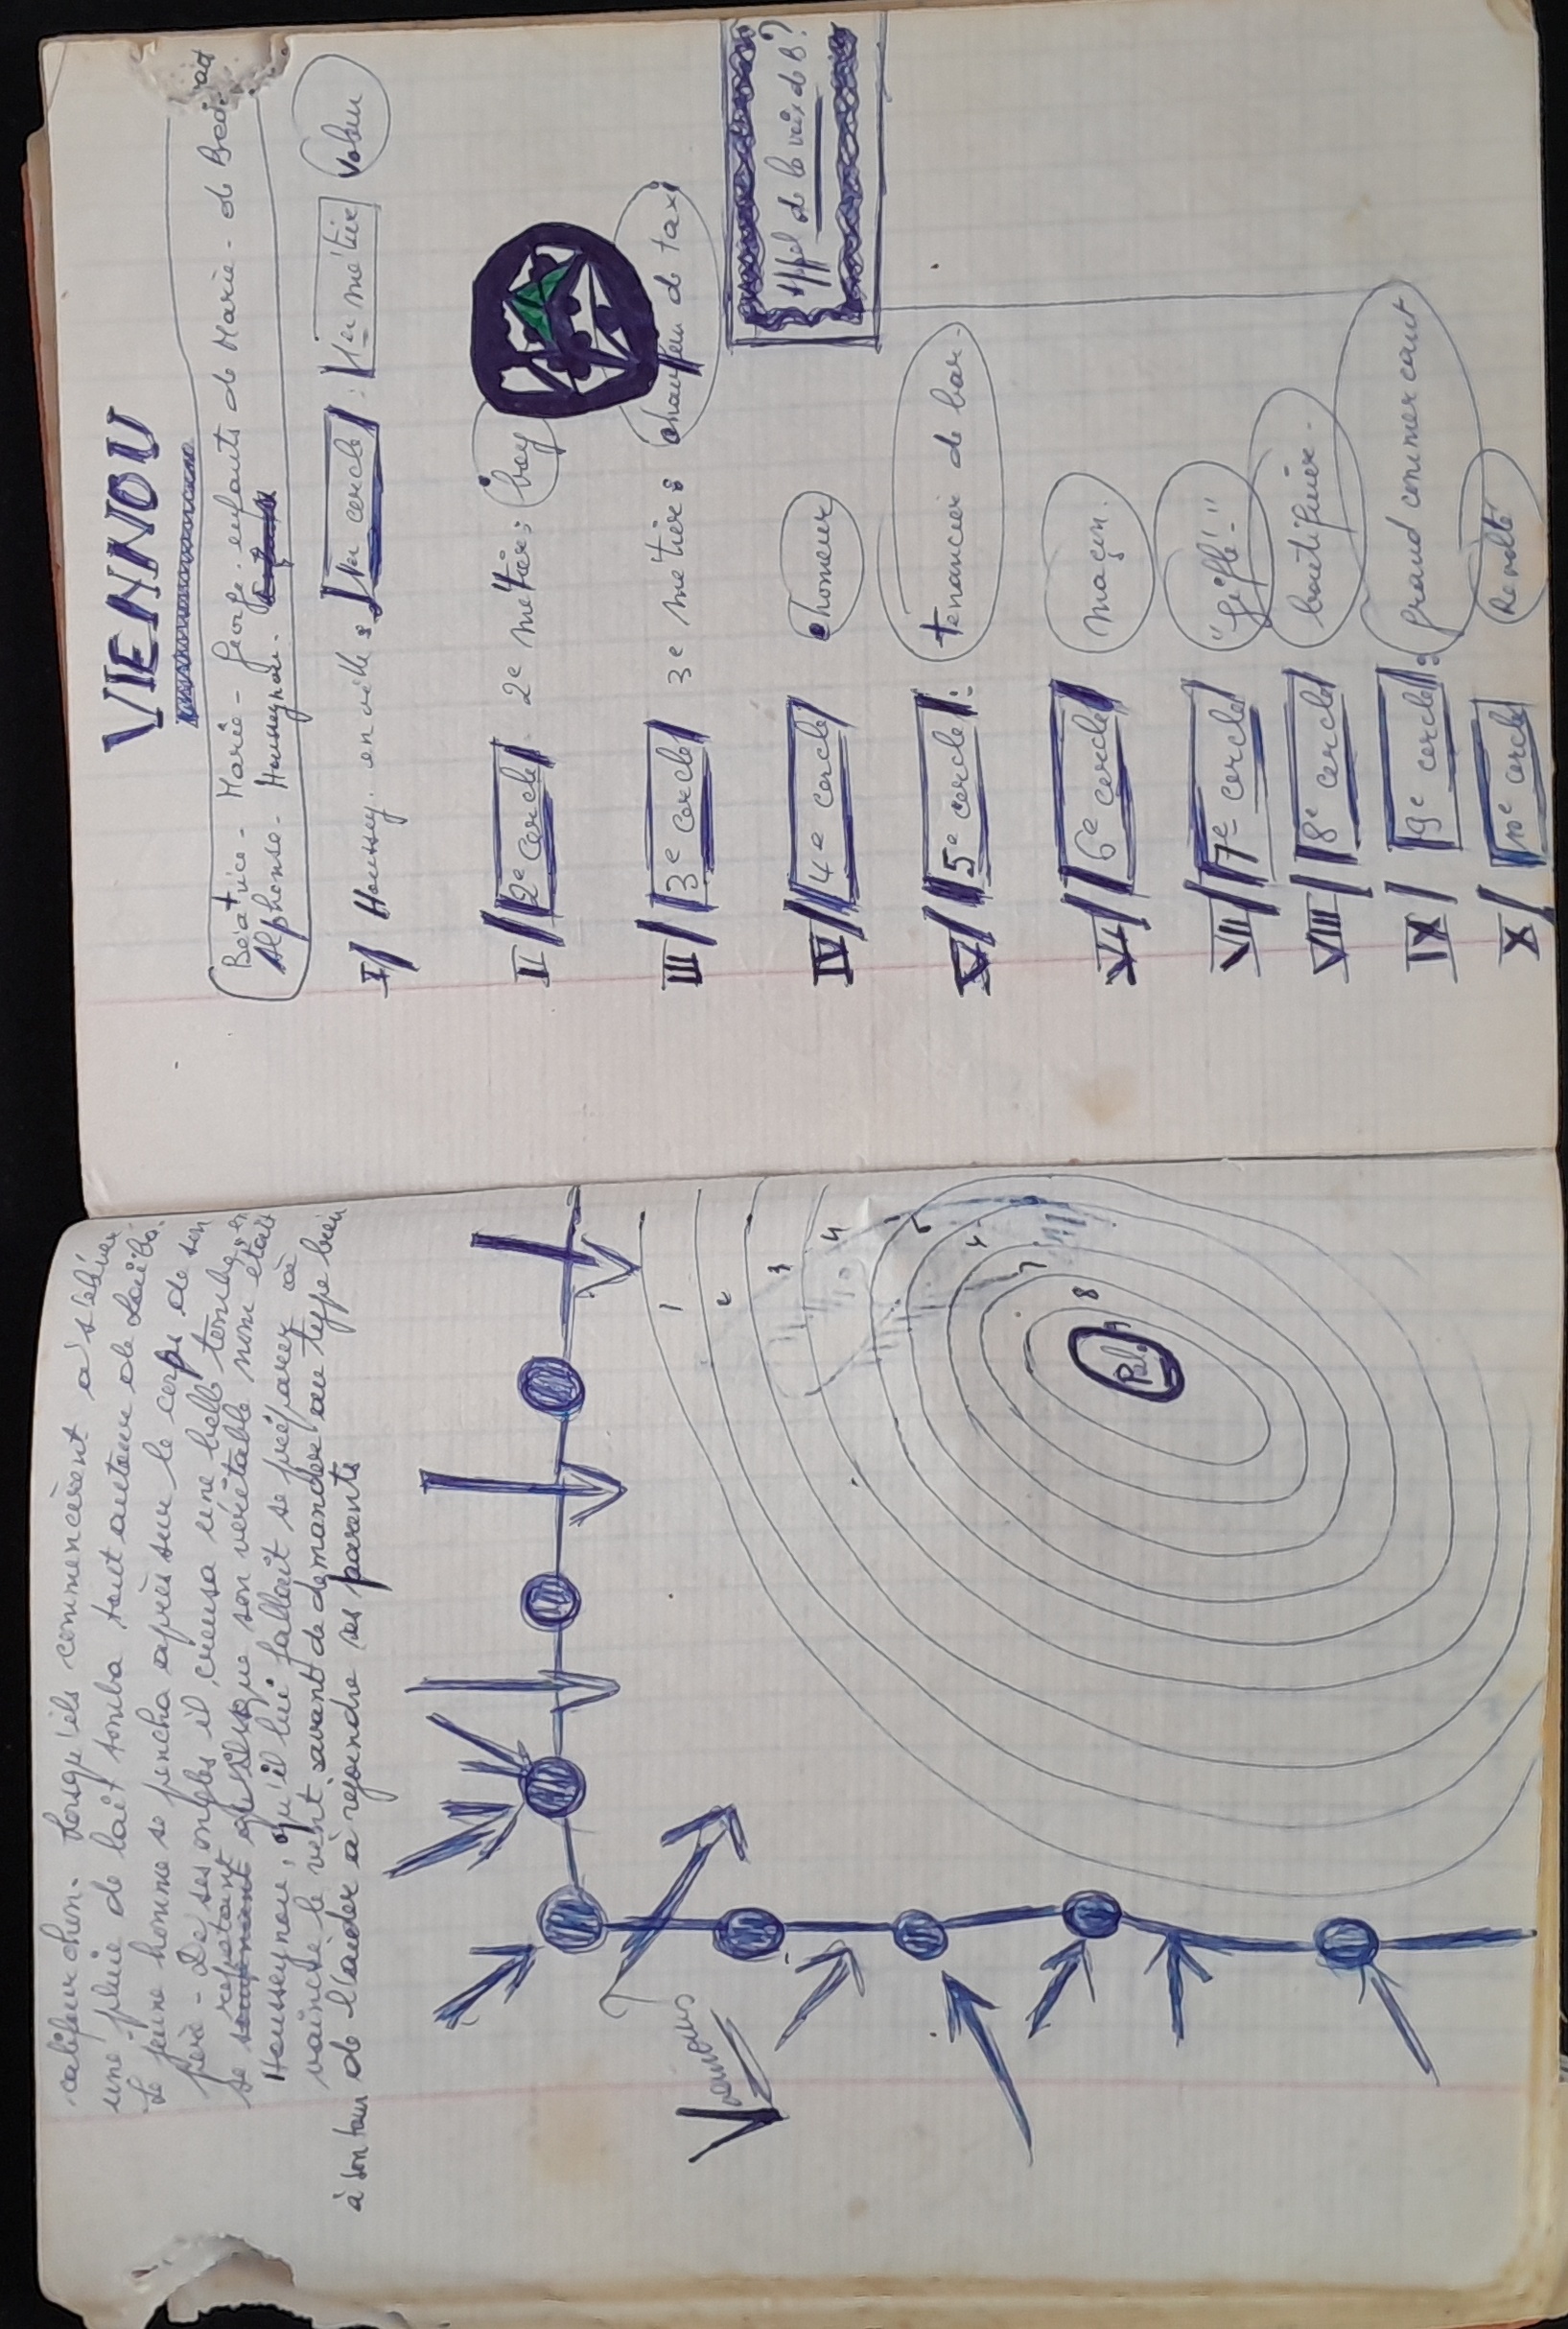 califourchon. Lorsqu'ils commencèrent à s'élever
une pluie de lait tomba tout autour de
Le jeune homme se pencha après sur le corps de son
père - De ses ongles il creusa une belle tombe, en
se répétant que son véritable nom était
Housseynou, qu'il lui fallait se préparer à
vaincre le vent avant de demander au type bien
à son tour de l'aider à rejoindre ses parents
1
2
3
4
5
7
8
9
VIENNOU
Béatrice - Marie - George. enfants de Marie - de
Alphonse - Housseynou.
I/ Houssey. en ville : 1er cercle : 1er métier voleur
II/ 2e cercle 2e métier : boy
III/ 3e cercle 3e métier : chauffeur de taxi
Appel de la voix de B ?
IV/ 4e cercle chomeur
V/ 5e cercle : tenancier de bar.
VI/ 6e cercle maçon.
VII/ 7e cercle
VIII/ 8e cercle boutiquier.
IX/ 9e cercle : grand commercant
X/ 10e cercle Révolté